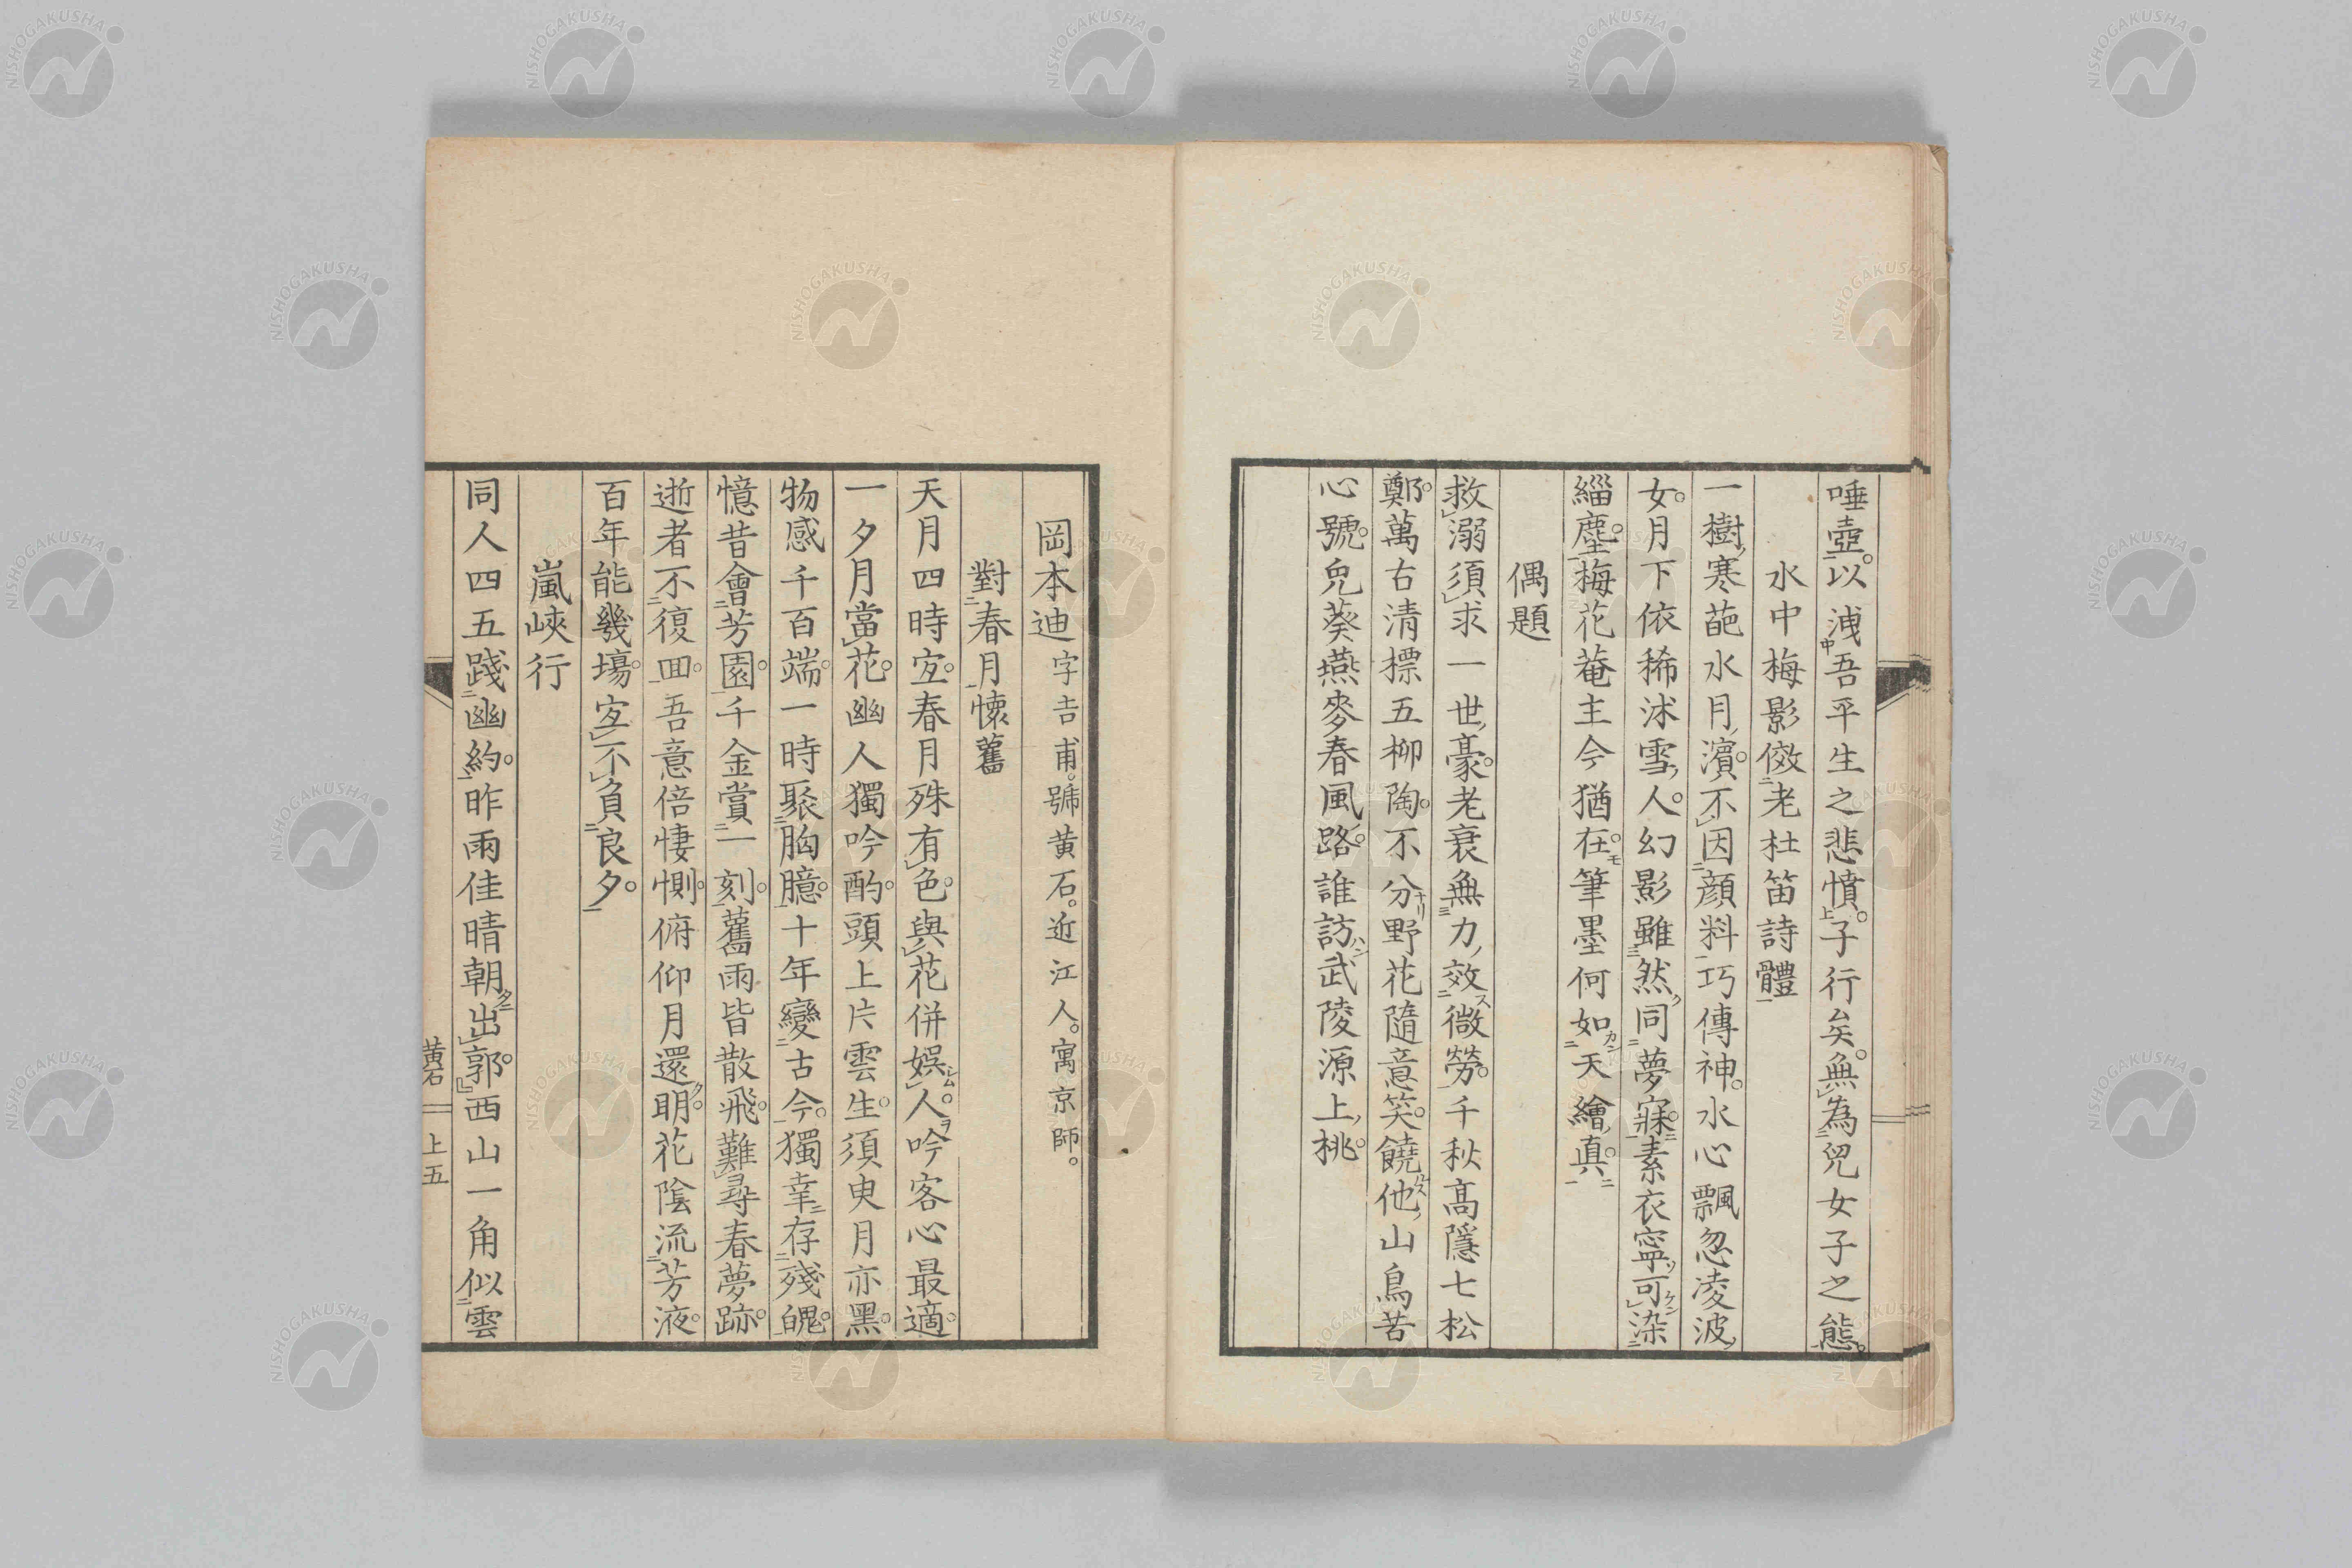 唾壺。以洩吾平生之悲憤。子行矣。無為兒女子之態。
水中梅影傚老杜笛詩體
一樹寒葩水月濱。不因顔料巧傳神。水心飄忽凌波
女。月下依稀沐雪人。幻影雖然同夢寐。素衣寧可染
緇塵。梅花菴主今猶在。筆墨何如天繪真。
偶題
救溺須求一世豪。老衰無力效微勞。千秋高隱七松
鄭。萬古清標五柳陶。不分野花隨意笑。饒他山鳥苦
心號。兎葵燕麥春風路。誰訪武陵源上桃。
岡本迪字吉甫。號黄石。近江人。寓京師。
對春月懷舊
天月四時宜。春月殊有色。與花併娯人。吟客心最適。
一夕月當花。幽人獨吟酌。頭上片雲生。須臾月亦黑。
物感千百端。一時聚胸臆。十年變古今。獨幸存殘魄。
憶昔會芳園。千金賞一刻。舊雨皆散飛。難尋春夢跡。
逝者不復囬。吾意倍悽惻。俯仰月還明。花陰流芳液。
百年能幾塲。宜不負良夕。
嵐峽行
同人四五踐幽約。昨雨佳晴朝出郭。西山一角似雲
黄石 上五
NISHOGAKUSHA